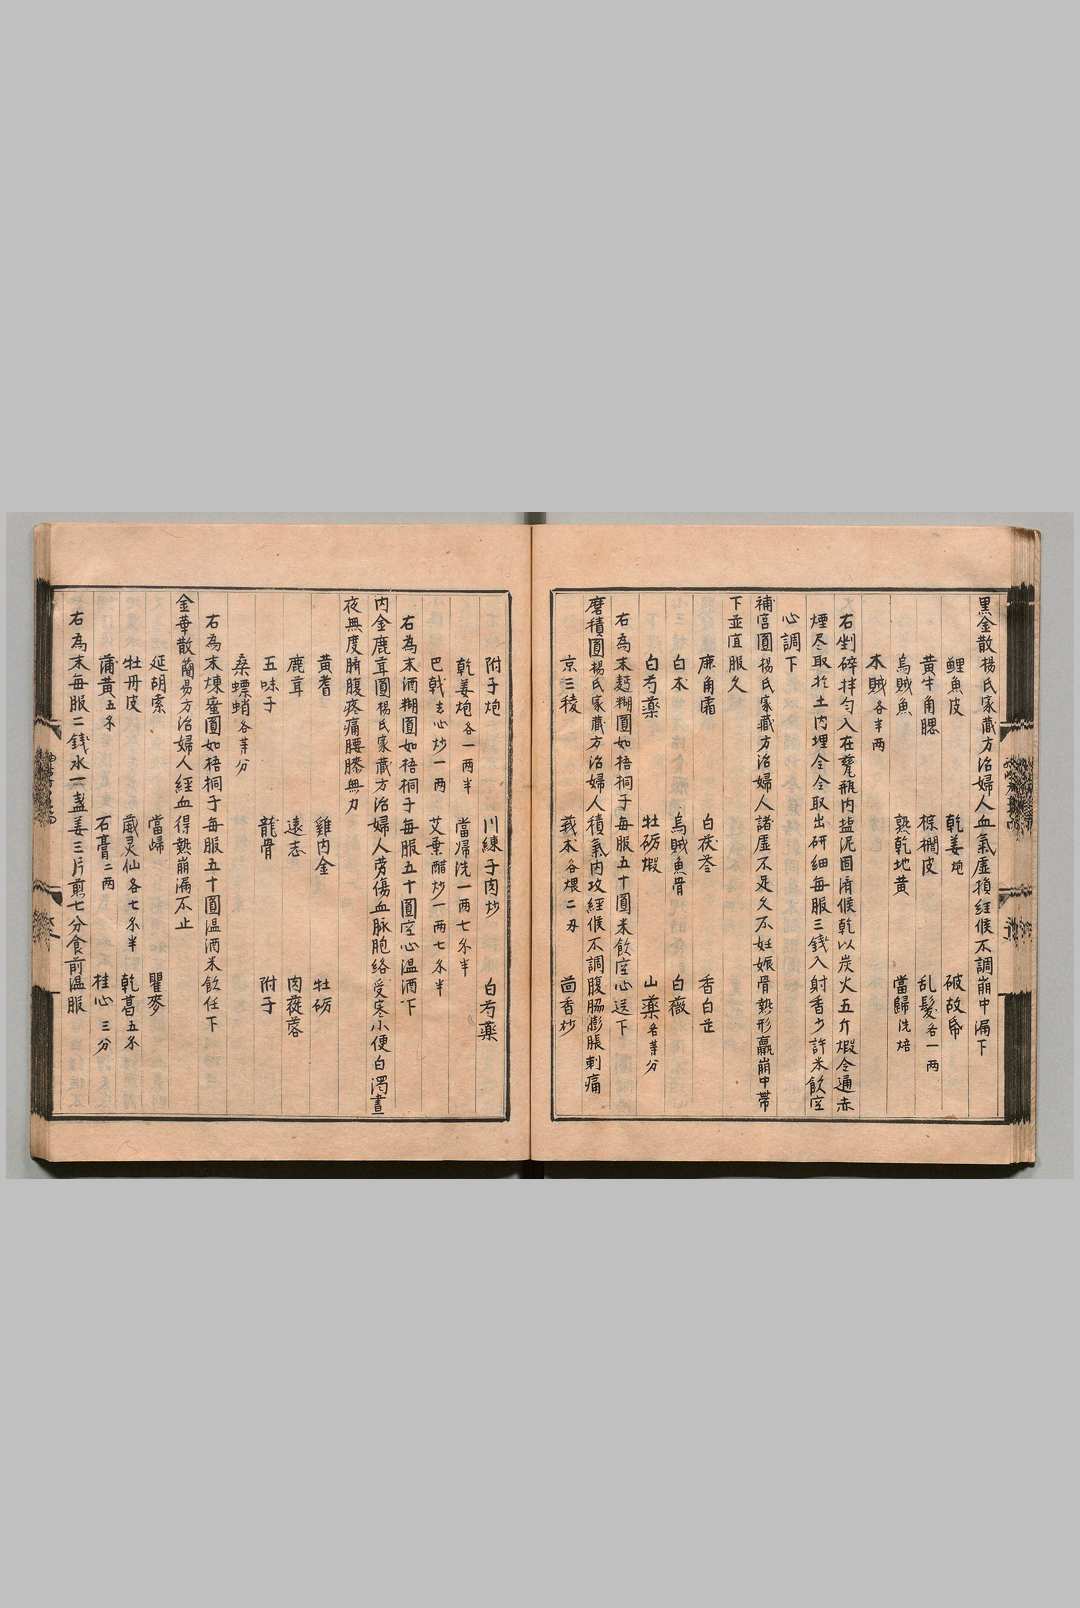 黑金散楊氏家藏方治婦人血氣虛損經候不調崩中漏下
鯉魚皮 乾姜炮 破故帋
黃牛角腮 棕櫚皮 乱髮各一兩
烏賊魚 熟乾地黄 當歸洗焙
木賊各半兩
右剉碎拌匀入在甆瓶内盐泥固濟候乾以炭火五斤煅令通赤
煙尽取於土内埋令全取出研細每服三錢入射香少許米飲空
心調下
補宮圓楊氏家藏方治婦人諸虛不足久不妊娠骨熱形羸崩中帶
下並宜服久
鹿角霜 白茯苓 香白芷
白朮 烏賊魚骨 白薇
白芍藥 牡砺煅 山藥各等分
右為末麪糊圓如梧桐子每服五十圓米飲空心送下
磨積圓楊氏家藏方治婦人積氣内攻經候不調腹脇膨脹刺痛
京三稜 莪朮各煨二刃 茴香炒
附子炮 川練子肉炒 白芍藥
乾姜炮各一兩半 當帰洗一兩七分半
巴戟去心炒一兩 艾葉醋炒一兩七分半
右為末酒糊圓如梧桐子每服五十圓空心温酒下
内金鹿茸圓楊氏家藏方治婦人劳傷血脉胞絡受寒小便白濁晝
夜無度臍腹疼痛腰膝無力
黃耆 雞内金 牡砺
鹿茸 遠志 肉蓯蓉
五味子 龍骨 附子
桑螵蛸各等分
右為末煉蜜圓如梧桐子每服五十圓温酒米飲任下
金華散蘭易方治婦人經血得熱崩漏不止
延胡索 當歸 瞿麥
牡丹皮 葳灵仙各七分半 乾葛五分
蒲黄五分 石膏二兩 桂心三分
右為末每服二錢水一盞姜三片煎七分食前温服